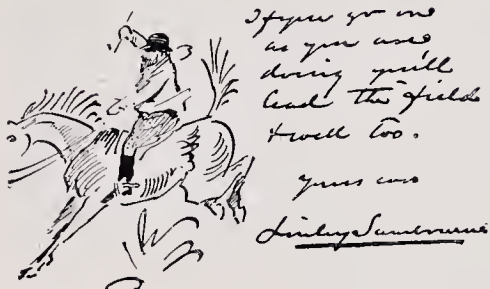 If you go on
as you are
doing you'll
lead the field
& well too.
Yours ever
Linley Sambourne